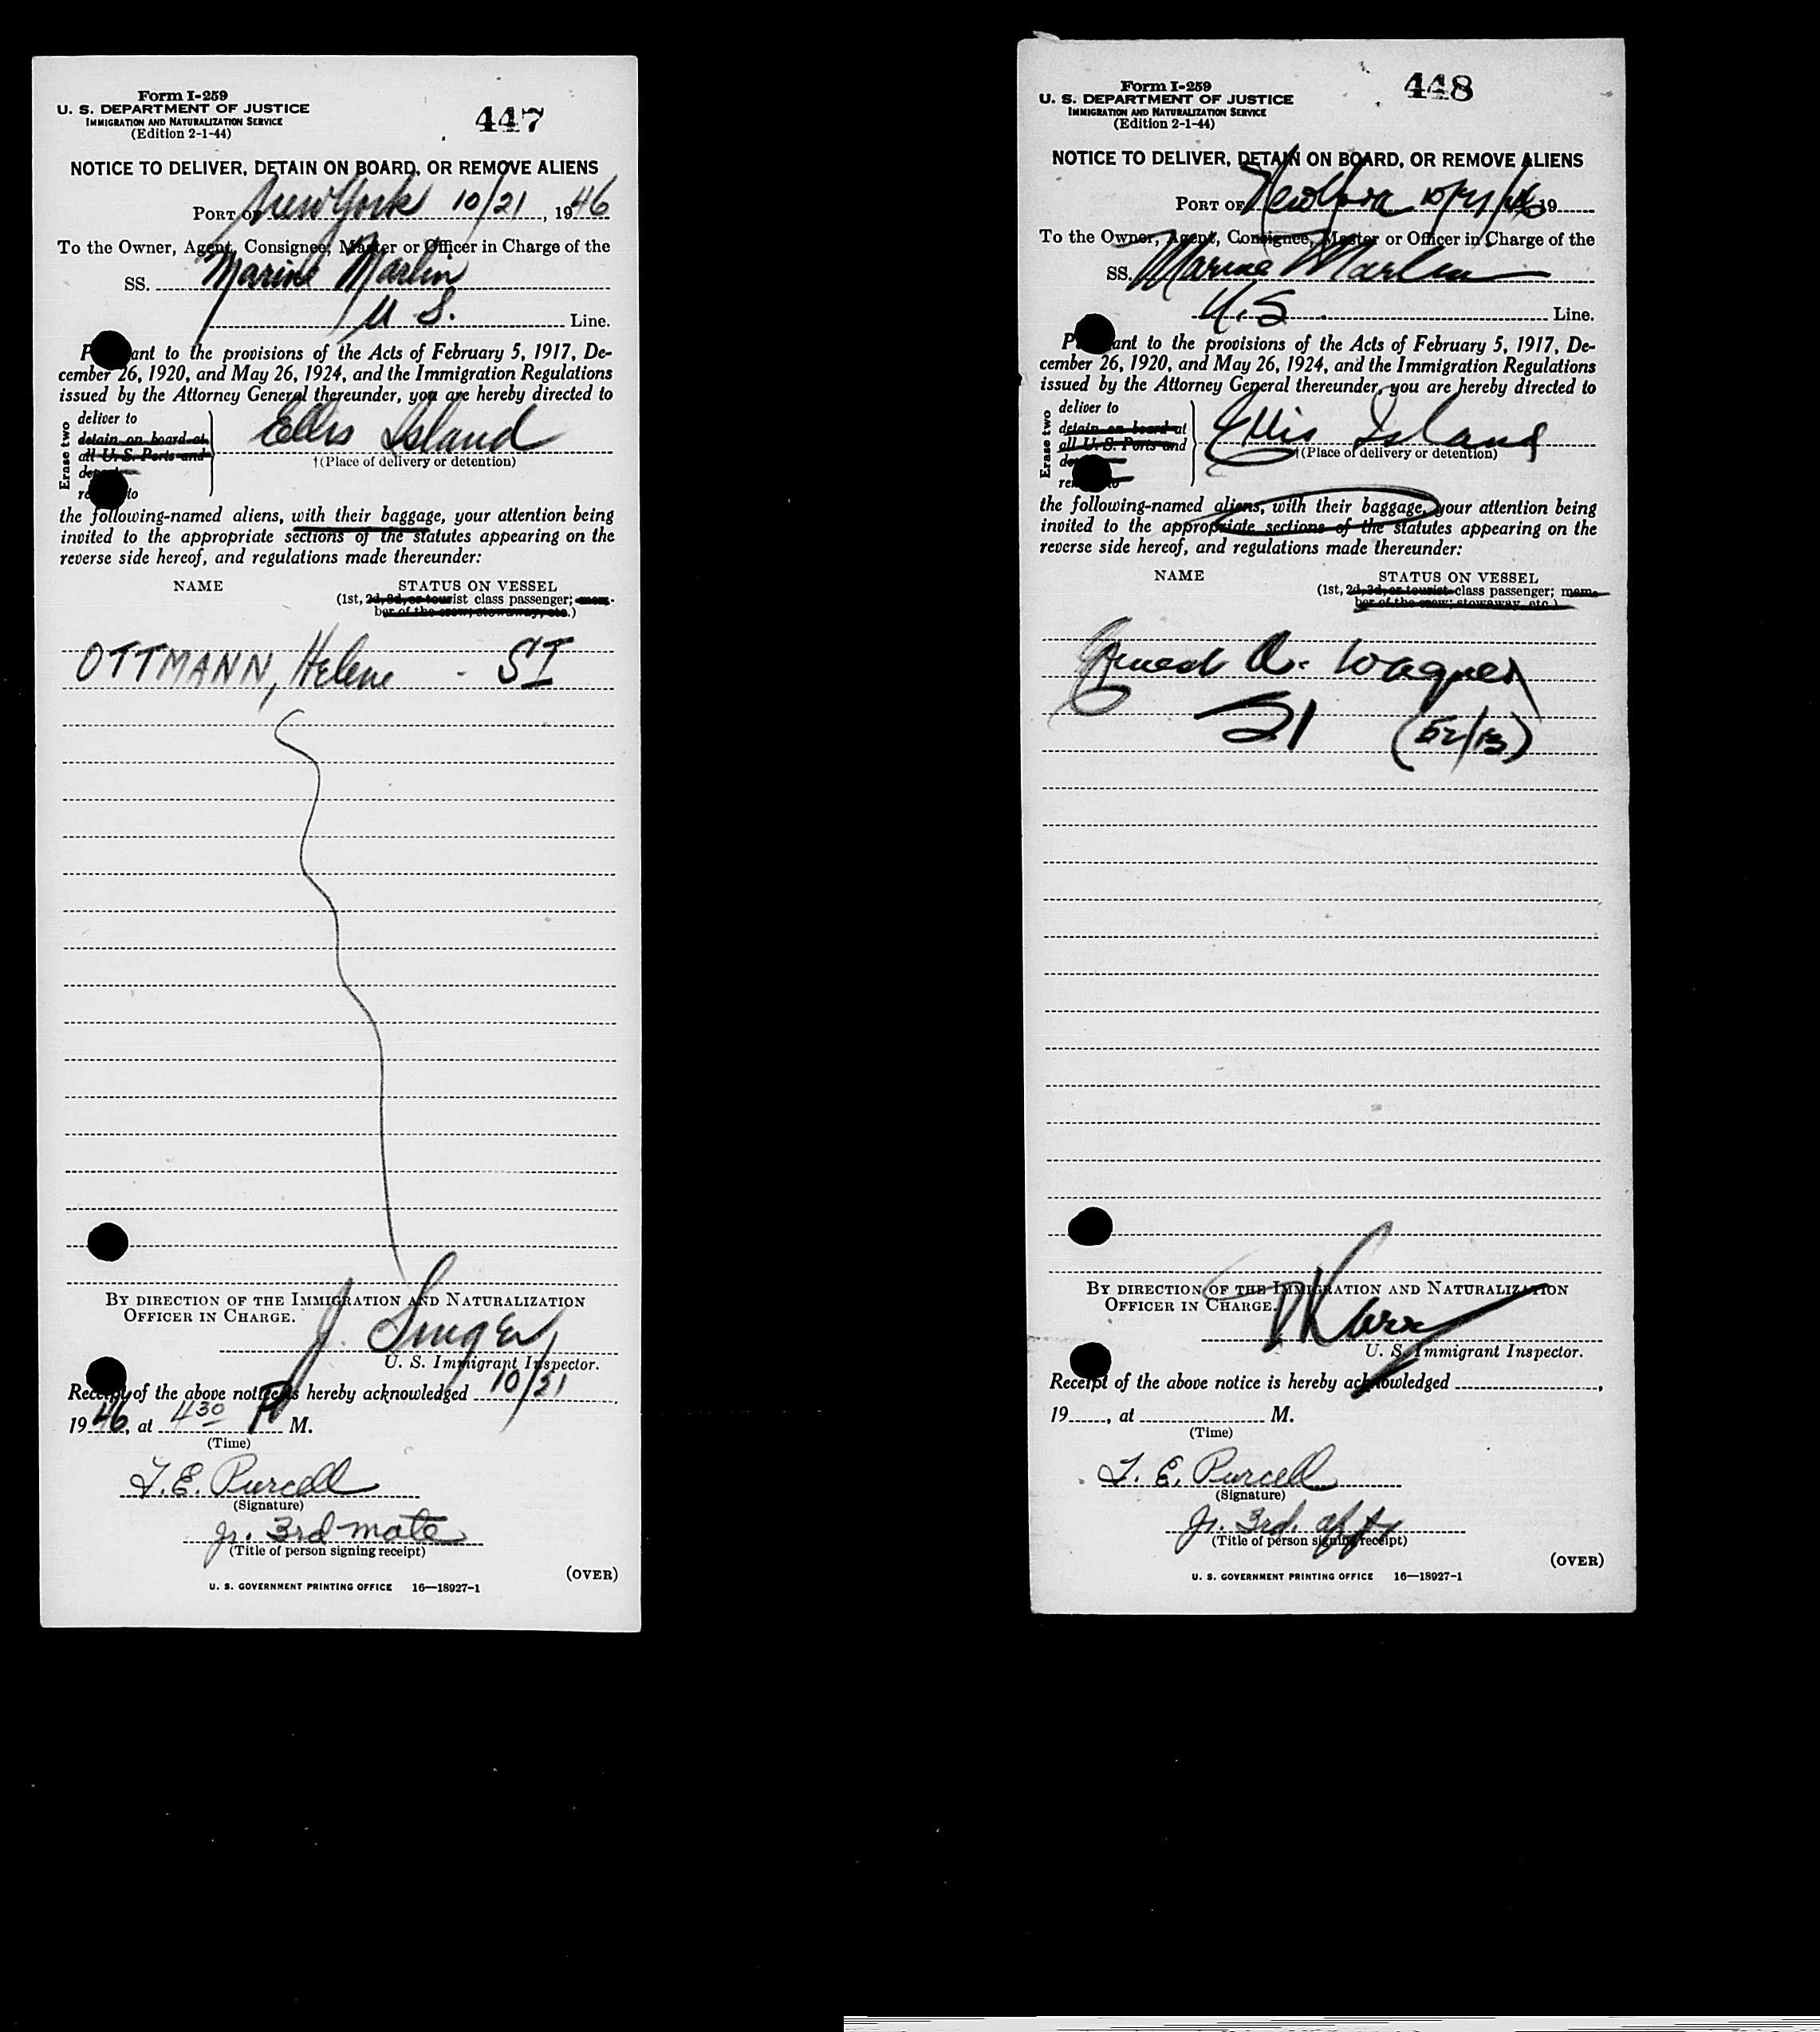 Form I-259
U. S. DEPARTMENT OF JUSTICE
IMMIGRATION AND NATURALIZATION SERVICE
(Edition 2-1-44)
447
NOTICE TO DELIVER, DETAIN ON BOARD, OR REMOVE ALIENS
PORT OF New York 10/21, 1946
To the Owner, Agent, Consignee, Master or Officer in Charge of the
SS. Marine Marlin
U S. Line.
P ant to the provisions of the Acts of February 5, 1917, De-
cember 26, 1920, and May 26, 1924, and the Immigration Regulations
issued by the Attorney General thereunder, you are hereby directed to
Erase two
deliver to
detain on board at
all U. S. Ports and
to
Ellis Island
†(Place of delivery or detention)
the following-named aliens, with their baggage, your attention being
invited to the appropriate sections of the statutes appearing on the
reverse side hereof, and regulations made thereunder:
NAME STATUS ON VESSEL
(1st, 2d, 3d, or tourist class passenger; mem-
ber of the crew; stowaway, etc.)
OTTMANN, Helene - SI
BY DIRECTION OF THE IMMIGRATION AND NATURALIZATION
OFFICER IN CHARGE.
J. Singer
U. S. Immigrant Inspector.
Receipt of the above notice is hereby acknowledged 10/21,
1946, at 4 30 P M.
(Time)
T. E. Purcell
(Signature)
Jr. 3rd mate
(Title of person signing receipt)
(OVER)
U. S. GOVERNMENT PRINTING OFFICE 16—18927-1
Form I-259
U. S. DEPARTMENT OF JUSTICE
IMMIGRATION AND NATURALIZATION SERVICE
(Edition 2-1-44)
448
NOTICE TO DELIVER, DETAIN ON BOARD, OR REMOVE ALIENS
PORT OF New York 10/21/46 19
To the Owner, Agent, Consignee, Master or Officer in Charge of the
SS. Marine Marlin
U.S. Line.
P ant to the provisions of the Acts of February 5, 1917, De-
cember 26, 1920, and May 26, 1924, and the Immigration Regulations
issued by the Attorney General thereunder, you are hereby directed to
Erase two
deliver to
detain on board at
all U. S. Ports and
to
Ellis Island
†(Place of delivery or detention)
the following-named aliens, with their baggage, your attention being
invited to the appropriate sections of the statutes appearing on the
reverse side hereof, and regulations made thereunder:
NAME STATUS ON VESSEL
(1st, 2d, 3d, or tourist class passenger; mem-
ber of the crew; stowaway, etc.)
Ernest A. Wagner
SI (52/13)
BY DIRECTION OF THE IMMIGRATION AND NATURALIZATION
OFFICER IN CHARGE.
U. S. Immigrant Inspector.
Receipt of the above notice is hereby acknowledged ,
19 , at M.
(Time)
T. E. Purcell
(Signature)
Jr. 3rd.
(Title of person signing receipt)
(OVER)
U. S. GOVERNMENT PRINTING OFFICE 16—18927-1